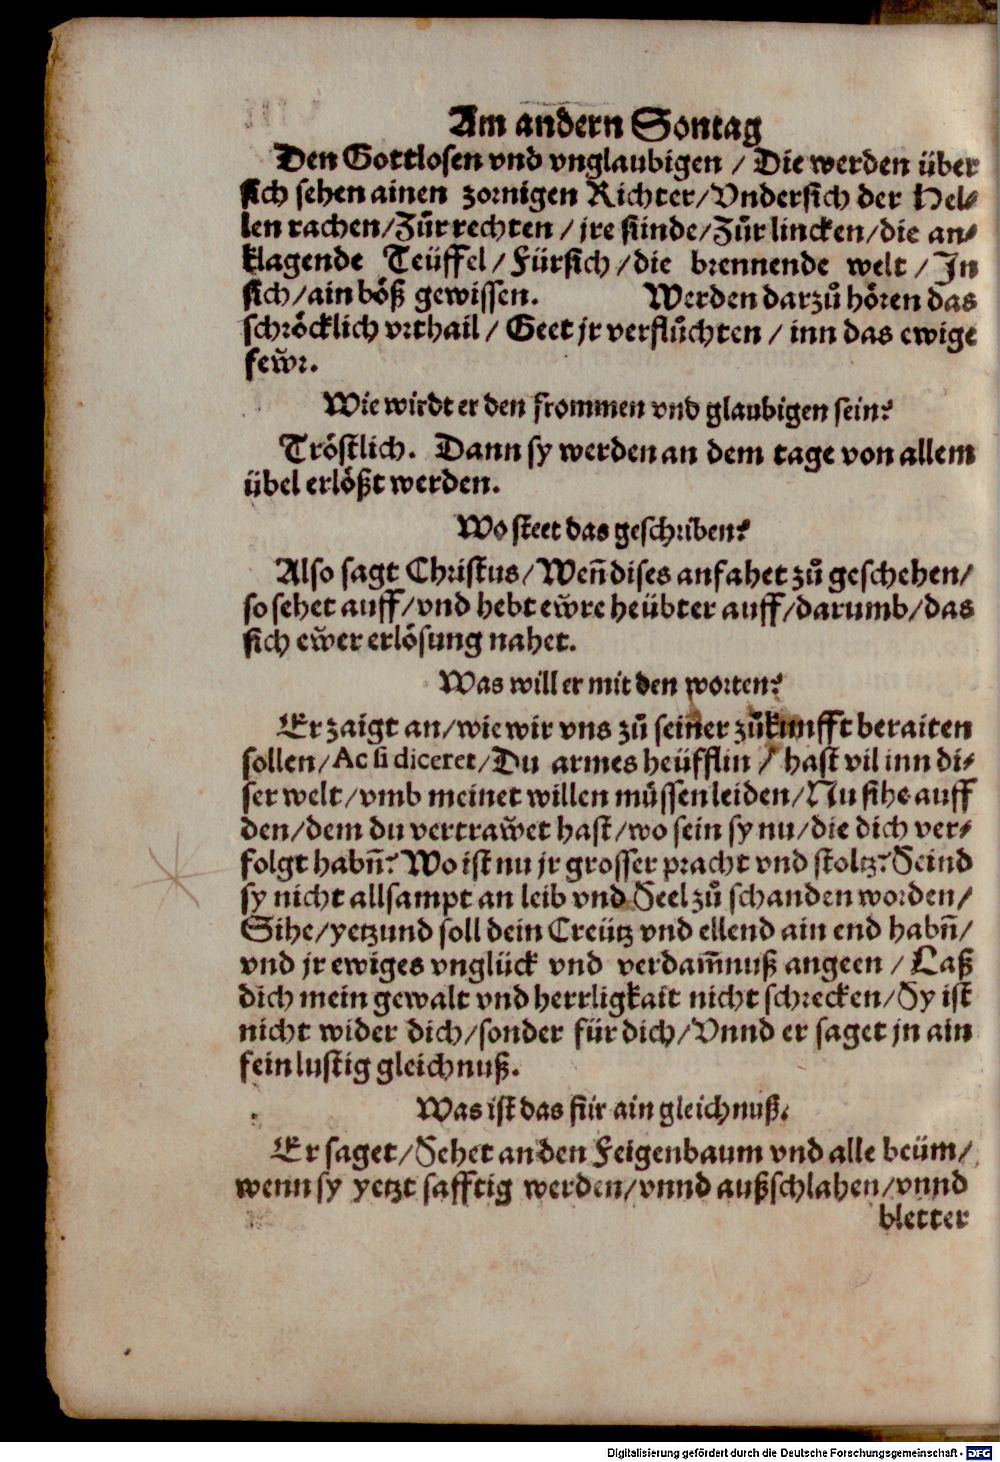 Am andern Sontag
Den Gottlosen vnd vnglaubigen / Die werden über
sich sehen ainen zornigen Richter/Vndersich der Hel⸗
len rachen/Zůr rechten / jre sünde/Zůr lincken/die an⸗
klagende Teüffel/Fürsich/die brennende welt/In
sich/ain böß gewissen. Werden darzů hören das
schröcklich vrthail/ Geet jr verflůchten / inn das ewige
fewͤr.
Wie wirdt er den frommen vnd glaubigen sein?
Tröstlich. Dann sy werden an dem tage von allem
übel erlößt werden.
Wo steet das geschriben?
Also sagt Christus/Wen̄ dises anfahet zů geschehen/
so sehet auff/vnd hebt ewͤre heübter auff/darumb/das
sich ewͤer erlösung nahet.
Was will er mit den worten?
Er zaigt an/wie wir vns zů seiner zůkunfft beraiten
sollen/Ac si diceret/Du armes heüfflin / hast vil inn di⸗
ser welt/vmb meinet willen müssen leiden/Nu sihe auff
den/dem du vertrawͤet hast/wo sein sy nu/die dich ver⸗
folgt habn̄? Wo ist nu jr grosser pracht vnd stoltz? Seind
sy nicht allsampt an leib vnd Seel zů schanden worden/
Sihe/yetzund soll dein Creütz vnd ellend ain end habn̄/
vnd jr ewiges vnglück vnd verdam̄nuß angeen / Laß
dich mein gewalt vnd herrligkait nicht schrecken/Sy ist
nicht wider dich/sonder für dich/Vnnd er saget jn ain
fein lustig gleichnuß.
Was ist das für ain gleichnuß.
Er saget/Sehet an den Feigenbaum vnd alle beüm/
wenn sy yetzt safftig werden/vnnd außschlahen/vnnd
bletter
Digitalisierung gefördert durch die Deutsche Forschungsgemeinschaft - DFG